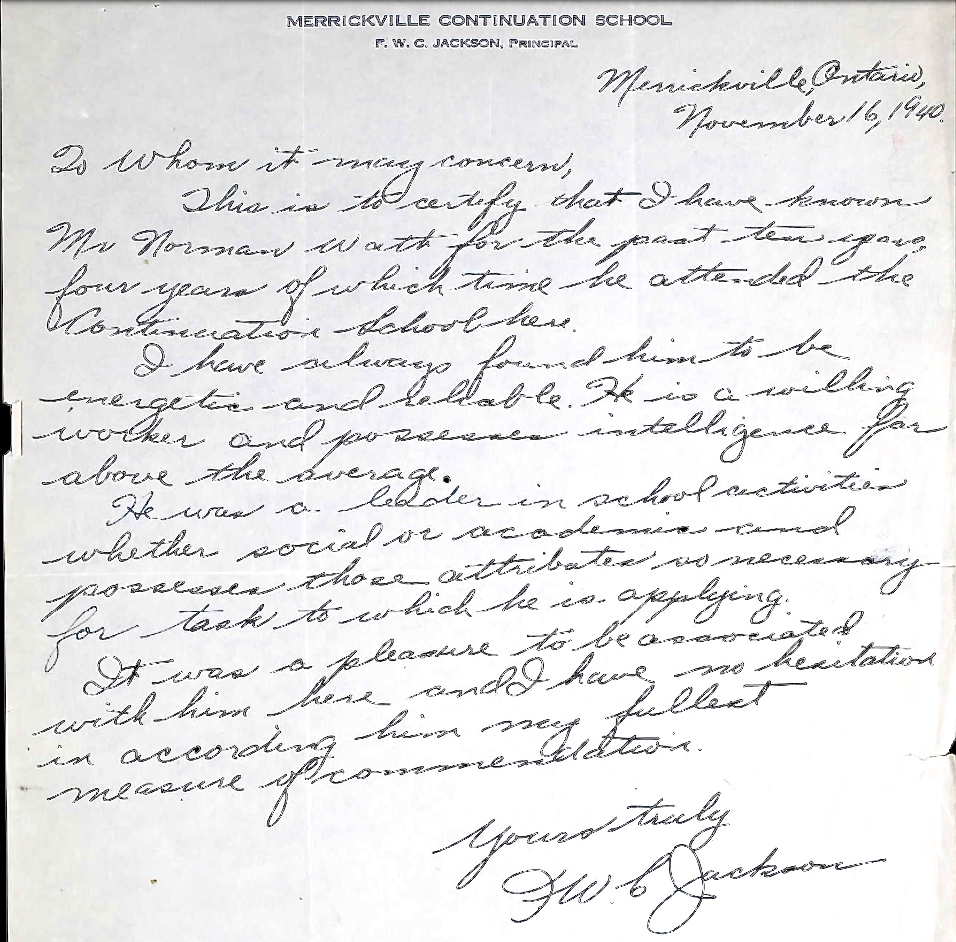 MERRICKVILLE CONTINUATION SCHOOL
F. W. C. JACKSON, PRINCIPAL
Merrickville, Ontario,
November 16, 1940.
To Whom it may concern,
This is to certify that I have known
Mr Norman Wath for the past ten years,
four years of which time he attended the
Continuation School here.
I have always found him to be
energetic and reliable. He is a willing
worker and possesses intelligence far
above the average.
He was a leader in school activities
whether social or academic and
possesses those attributes so necessary
for task to which he is applying.
It was a pleasure to be associated
with him here and I have no hesitation
in according him my fullest
measure of commendation.
Yours truly
F W C Jackson